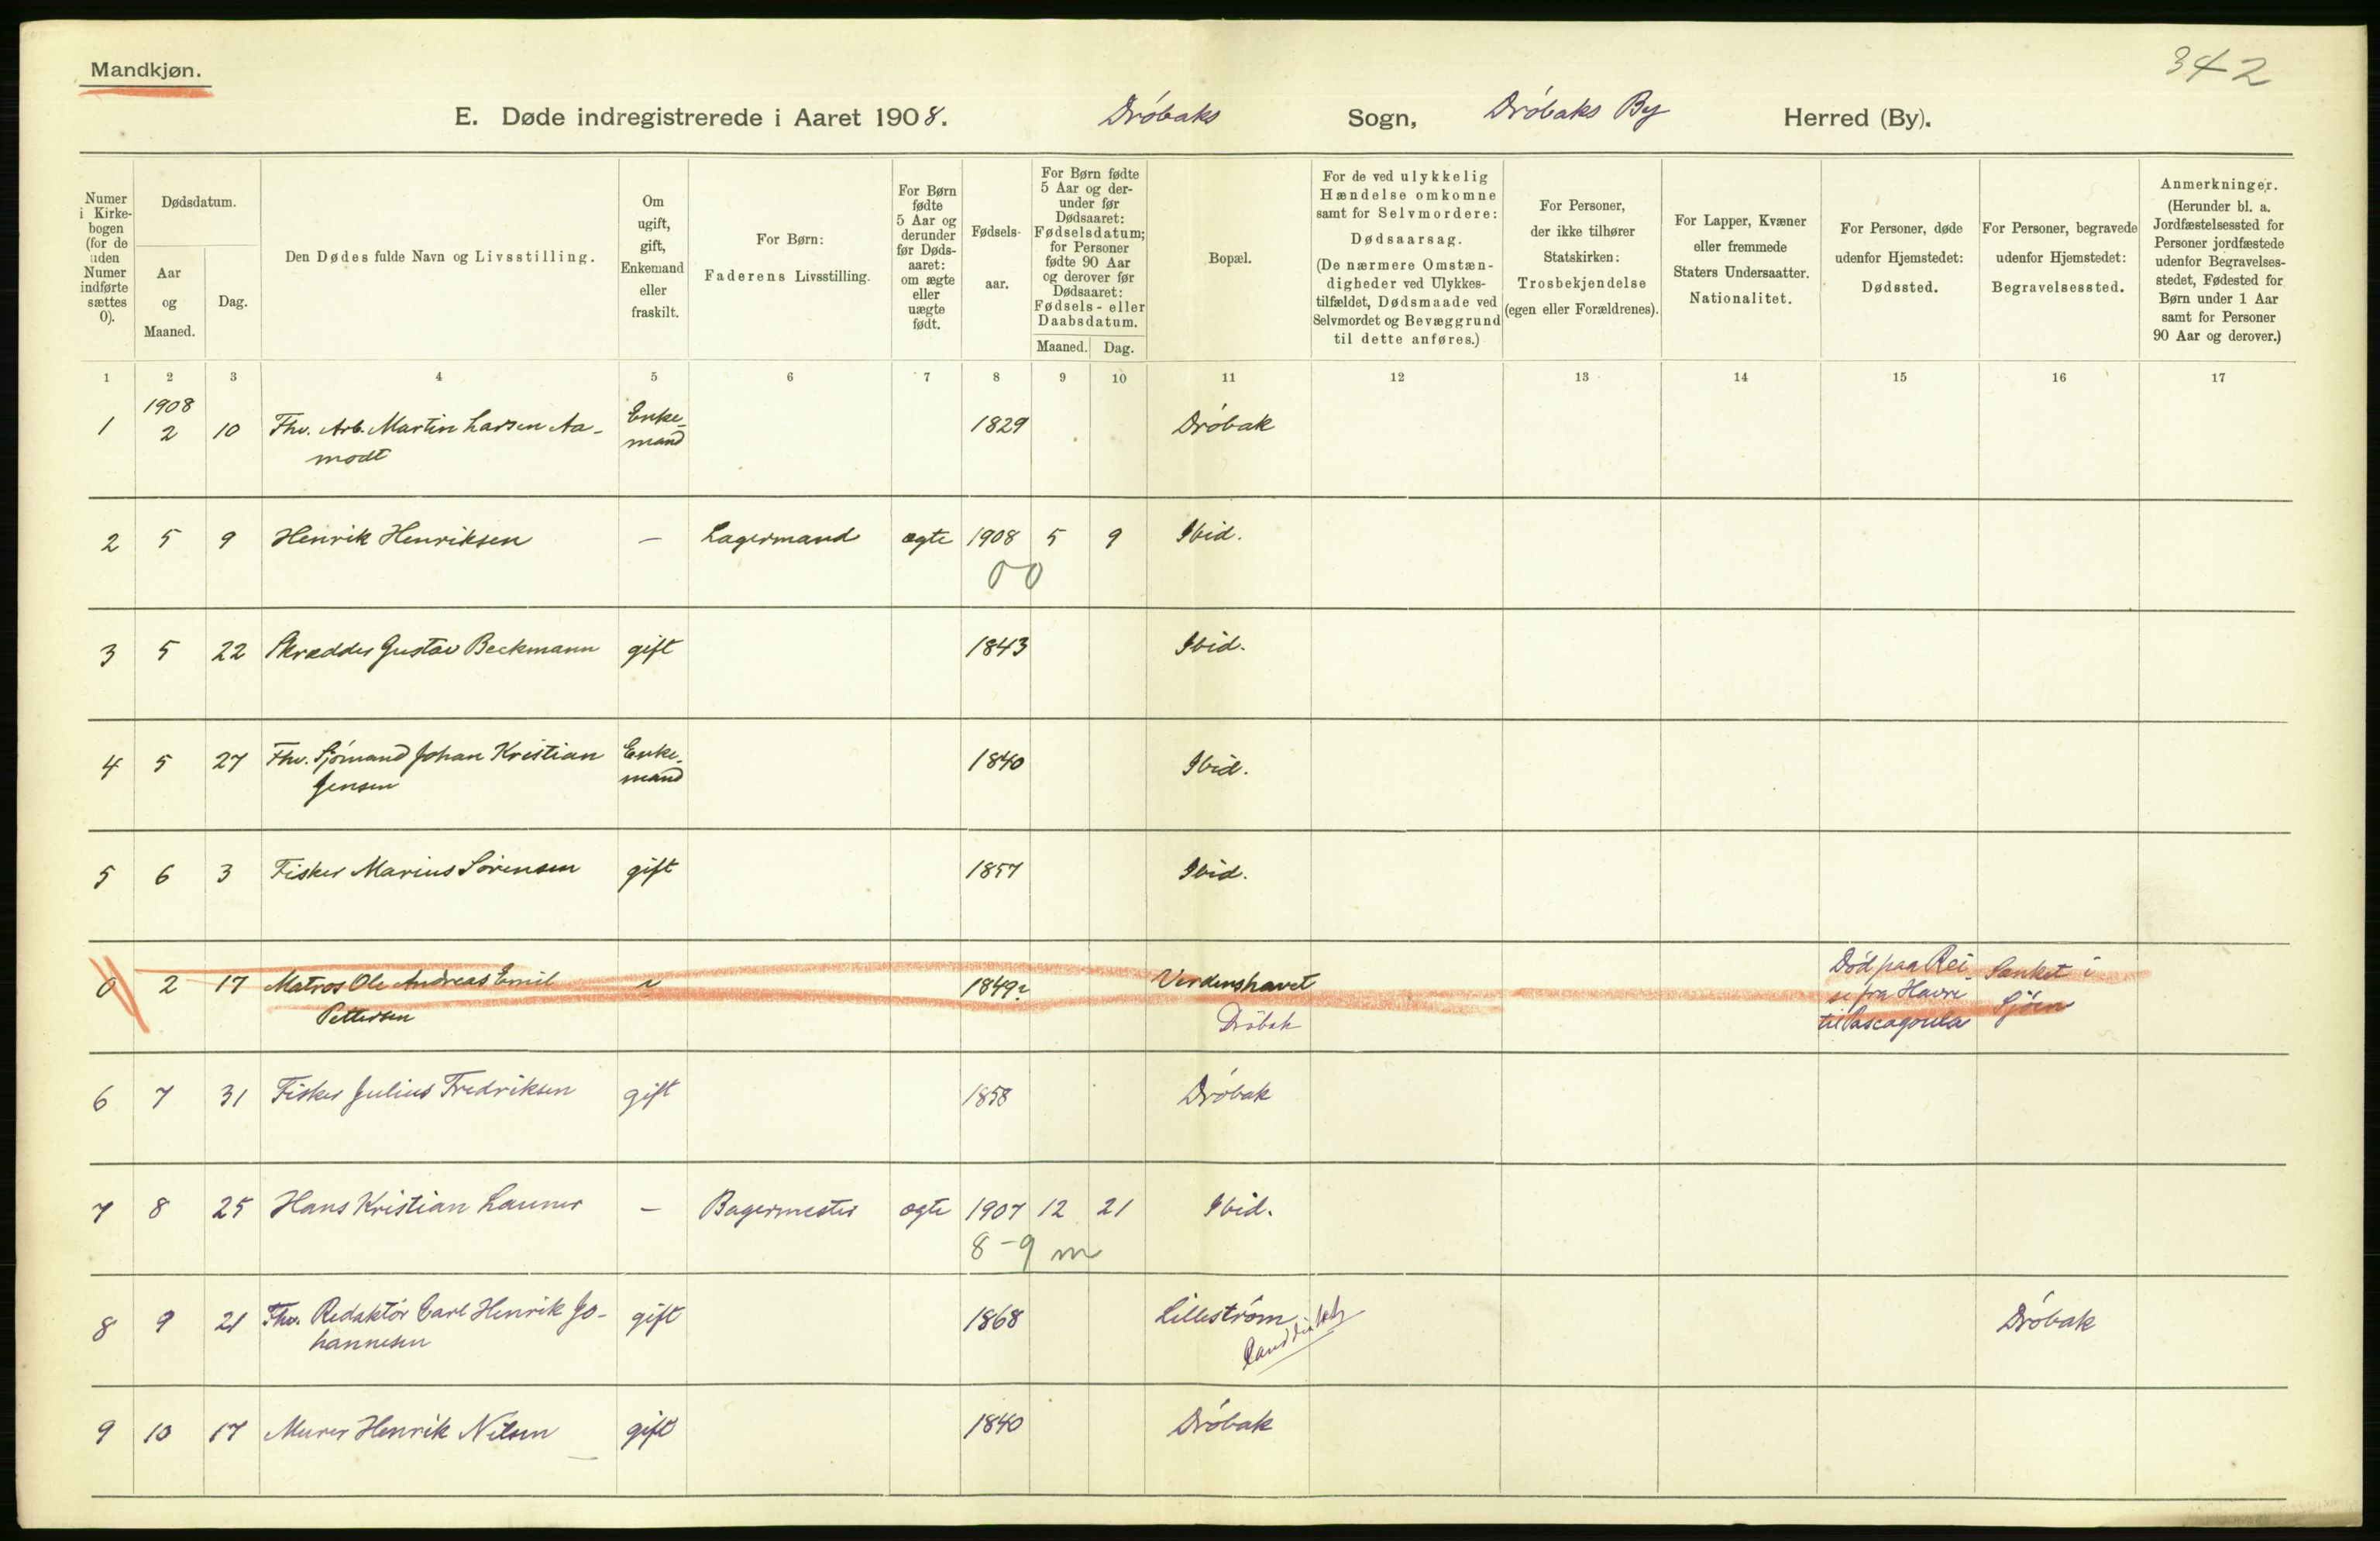 342
Mandkjøn.
E. Døde indregistrerede i Aaret 1908. Dróbaks Sogn, Dróbaks By Herred (By).
Numer
i Kirke-
bogen
(for de
uden
Numer
indførte
sættes
0).
Dødsdatum.
Aar
og
Maaned.
Dag.
Den Dødes fulde Navn og Livsstilling.
Om
ugift,
gift,
Enkemand
eller
fraskilt.
For Børn:
Faderens Livsstilling.
For Børn
fødte
5 Aar og
derunder
før Døds-
aaret:
om ægte
eller
uægte
født.
Fødsels-
aar.
For Børn fødte
5 Aar og der-
under før
Dødsaaret:
Fødselsdatum;
for Personer
fødte 90 Aar
og derover før
Dødsaaret:
Fødsels- eller
Daabsdatum.
Maaned. Dag.
Bopæl.
For de ved ulykkelig
Hændelse omkomne
samt for Selvmordere:
Dødsaarsag.
(De nærmere Omstæn-
digheder ved Ulykkes-
tilfældet, Dødsmaade ved
Selvmordet og Bevæggrund
til dette anføres.)
For Personer,
der ikke tilhører
Statskirken:
Trosbekjendelse
(egen eller Forældrenes).
For Lapper, Kvæner
eller fremmede
Staters Undersaatter.
Nationalitet.
For Personer, døde
udenfor Hjemstedet:
Dødssted.
For Personer, begravede
udenfor Hjemstedet:
Begravelsessted.
Anmerkninger.
(Herunder bl. a.
Jordfæstelsessted for
Personer jordfæstede
udenfor Begravelses-
stedet, Fødested for
Børn under 1 Aar
samt for Personer
90 Aar og derover.)
1 2 3 4 5 6 7 8 9 10 11 12 13 14 15 16 17
1908
1 2 10 Fhv. Arb. Martin Larsen Aa- Enke- 1829 Dróbak
modt mand
2 5 9 Henrik Henriksen — Lagermand ægte 1908 5 9 Ibid.
00
3 5 22 Skrædder Gustav Beckmann gift 1843 Ibid.
4 5 27 Fhv. Sjómand Johan Kristian Enke- 1840 Ibid.
Jensen mand
5 6 3 Fisker Marius Sörensen gift 1857 Ibid.
0 2 17 Matros Ole Andreas Emil 1849? Verdenshavet Död paa Rei- Sænket i
Pettersen Dröbak se fra Havre Sjöen
til Pascagoula
6 7 31 Fisker Julius Fredriksen gift 1858 Dróbak
7 8 25 Hans Kristian Launer — Bagermester ægte 1907 12 21 Ibid.
8-9 m
8 9 21 Fhv. Redaktör Carl Henrik Jo- gift 1868 Lilleström Dróbak
hannesen
9 10 17 Murer Henrik Nilsen gift 1840 Dróbak